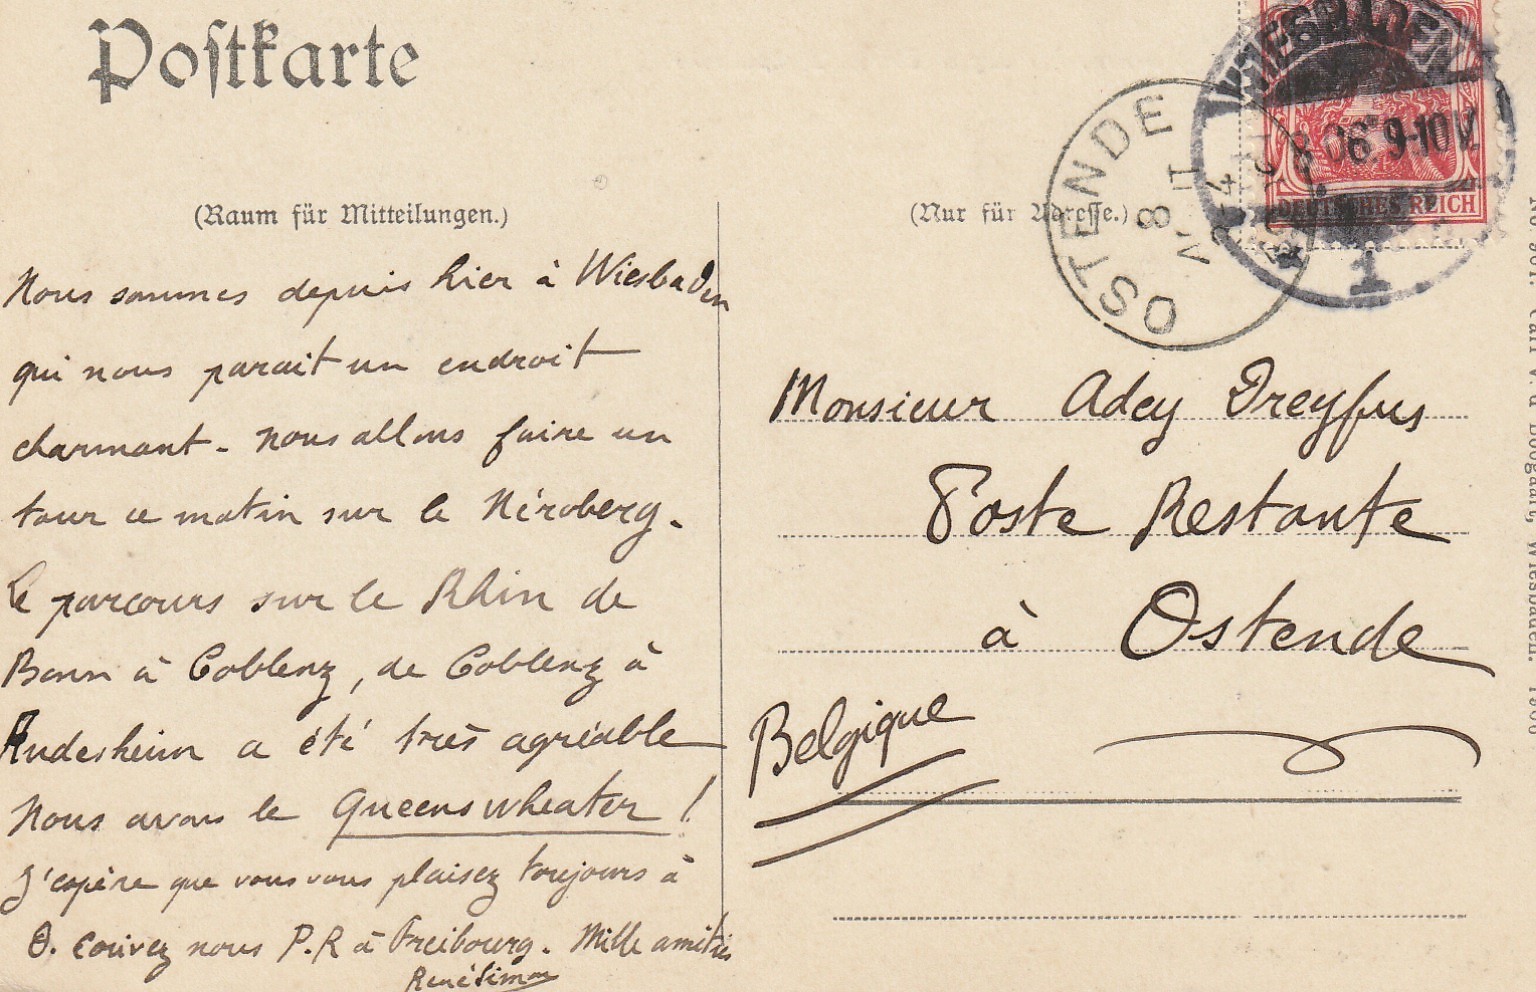 Postkarte
(Raum für Mitteilungen.)
Nous sommes depuis hier à Wiesbaden
qui nous parait un endroit
charmant - nous allons faire un
tour ce matin sur le Néroberg.
Le parcours sur le Rhin de
Bonn à Coblenz, de Coblenz à
Rudesheim a été très agréable
Nous avons le Queens wheater !
J'espère que vous vous plaisez toujours à
O. Ecrivez nous P.R à Freibourg. Mille amitiés
René Simon
(Nur für Adresse.)
OSTENDE
WIESBADEN
8 06. 9-10 V.
1
DEUTSCHES REICH
Monsieur Adey Dreyfus
Poste Restante
à Ostende
Belgique
Carl v. d. Boogaart, Wiesbaden.